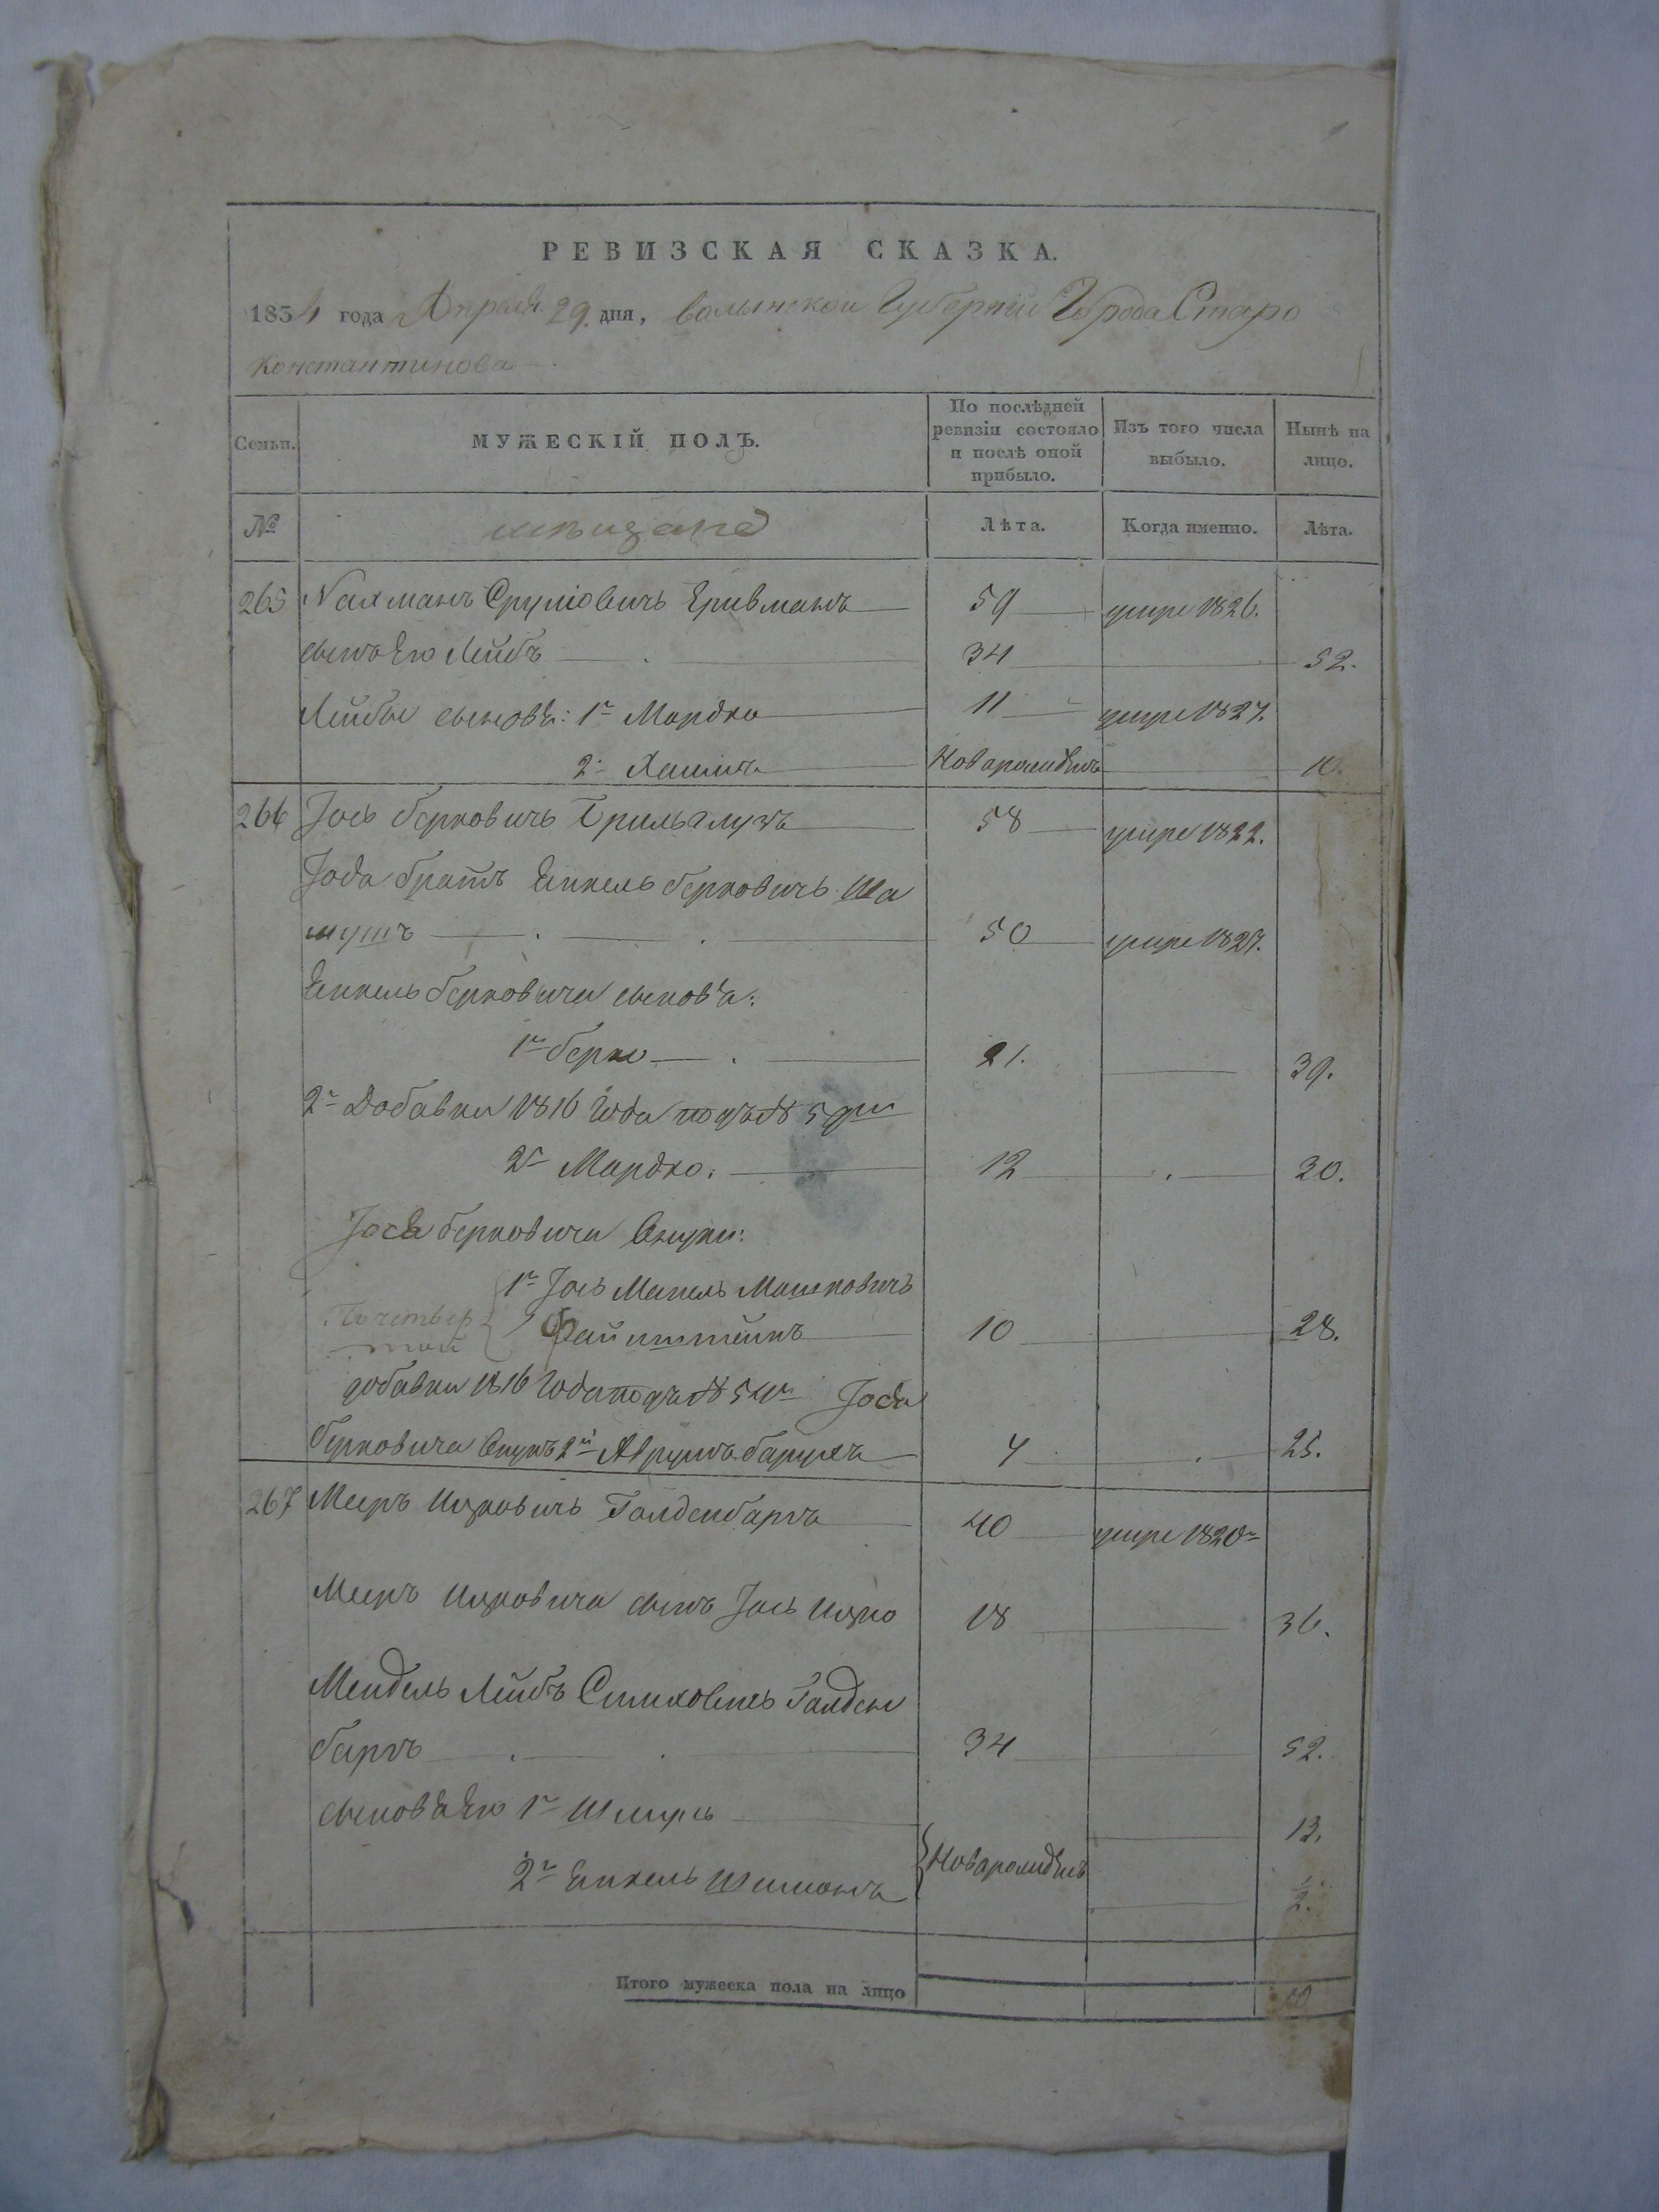 РЕВИЗСКАЯ СКАЗКА.
1834 года Апреля 29 дня, волынской Губернии Города Старо
константинова
Семьи. МУЖЕСКІЙ ПОЛЪ. По послѣдней ревизіи состояло и послѣ оной прибыло. Изъ того числа выбыло. Нынѣ на лицо.
№ мещане Лѣта. Когда именно. Лѣта.
265 Нахманъ Сруліовичъ 59 умре 1826.
сынъ Его Лейбъ 34 52.
Лейбы сыновья: 1й Мордко 11 умре 1827.
2й Хаимъ Новарожденъ 10.
266 Іось Берковичъ 58 умре 1822.
Іося братъ Янкель Берковичъ Ша
50 умре 1827.
Янкель Берковича сыновья:
1й Берко 21. 39.
2й Добавки 1816 Года подъ №
2й Мордко. 12 30.
Іося Берковича Внуки:
1й Іось Манель Мошковичъ
Файнштейнъ 10 28.
добавки 1816 Года подъ № Іося
Берковича Внукъ 2й Аврумъ Барухъ 7 25.
267 Мееръ Ицковичъ Голденбаргъ 40 умре 1820
Мееръ Ицковича сынъ Іось Ицко 18 36.
Мендель Лейбъ Голден
баргъ 34 52.
сыновья Его 1й Шмуль 13.
2й Янкель Шимонъ Новарожденъ
Итого мужеска пола на лицо 10